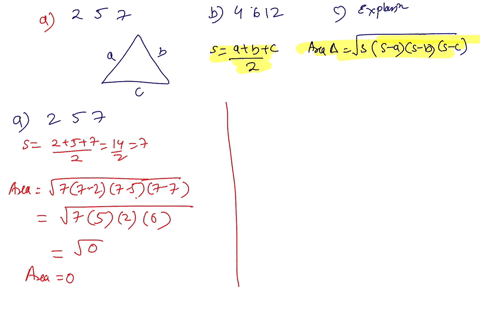 a) 2 5 7 b) 4 6 12 c) Explain
a b c
S = a+b+c / 2 Area Δ = √s(s-a)(s-b)(s-c)
a) 2 5 7
S = 2+5+7 / 2 = 14 / 2 = 7
Area = √7(7-2)(7-5)(7-7)
= √7(5)(2)(0)
= √0
Area = 0